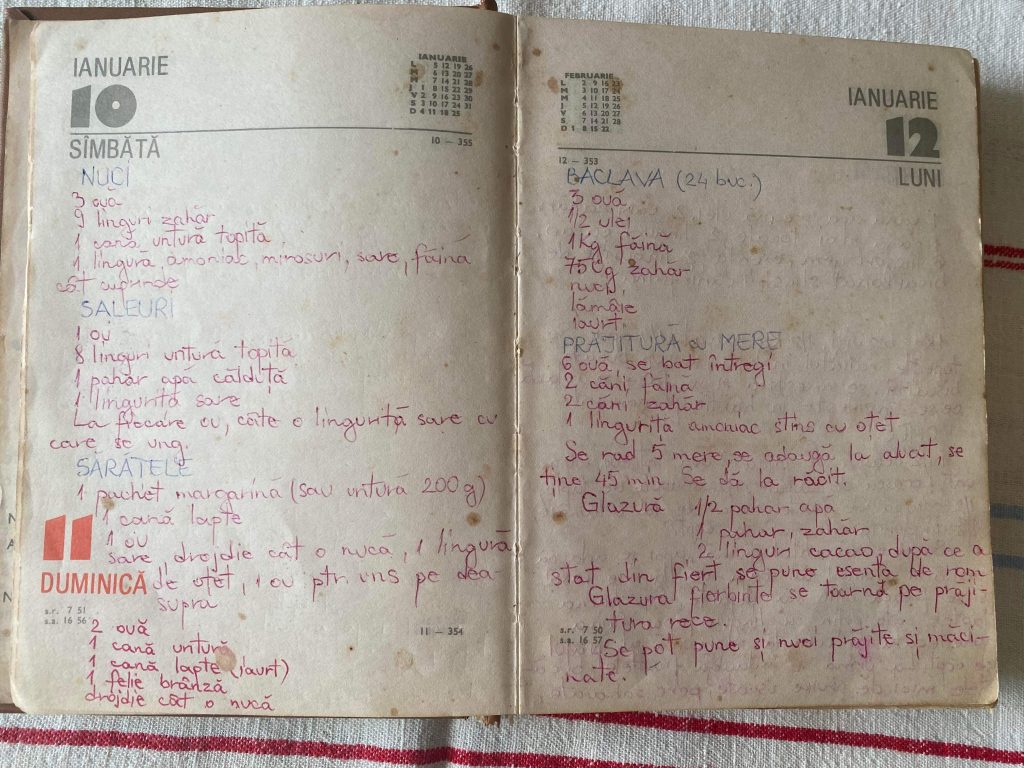 IANUARIE
10
SÎMBĂTĂ
IANUARIE
L 5 12 19 26
M 6 13 20 27
M 7 14 21 28
J 1 8 15 22 29
V 2 9 16 23 30
S 3 10 17 24 31
D 4 11 18 25
10 — 355
NUCI
3 ouă
9 linguri zahăr
1 cană untură topită
1 lingură amoniac, mirosuri, sare, făină
cât cuprinde
SALEURI
1 ou
8 linguri untură topită
1 pahar apă călduță
1 linguriță sare
La fiecare ou, câte o linguriță sare cu
care se ung.
SĂRĂȚELE
1 pachet margarină (sau untură 200 g)
1 cană lapte
1 ou
sare, drojdie cât o nucă, 1 lingură
de oțet, 1 ou ptr. uns pe dea-
supra
11
DUMINICĂ
s.r. 7 51
s.a. 16 56
11 — 354
2 ouă
1 cană untură
1 cană lapte (iaurt)
1 felie brânză
drojdie cât o nucă
FEBRUARIE
L 2 9 16 23
M 3 10 17 24
M 4 11 18 25
J 5 12 19 26
V 6 13 20 27
S 7 14 21 28
D 1 8 15 22
IANUARIE
12
LUNI
12 — 353
BACLAVA (24 buc.)
3 ouă
1/2 ulei
1 Kg făină
750g zahăr
nuci
lămâie
iaurt
PRĂJITURĂ cu MERE
6 ouă, se bat întregi
2 căni făină
2 căni zahăr
1 linguriță amoniac stins cu oțet
Se rad 5 mere, se adaugă la aluat, se
ține 45 min. Se dă la răcit.
Glazură 1/2 pahar apă
1 pahar, zahăr
2 linguri cacao, după ce a
stat din fiert se pune esență de rom
Glazura fierbinte se toarnă pe prăji-
tura rece.
s.r. 7 50
s.a. 16 57
Se pot pune și nuci prăjite și măci-
nate.